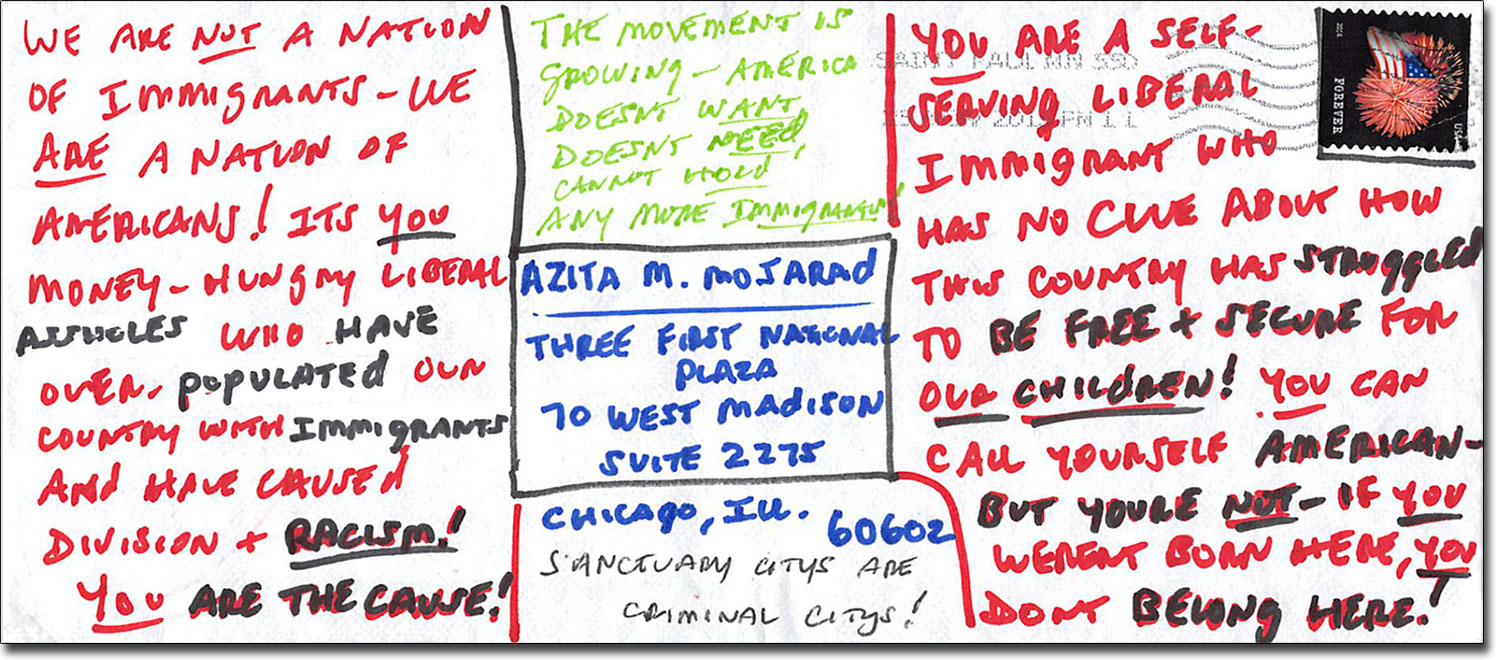 WE ARE NOT A NATION
OF IMMIGRANTS - WE
ARE A NATION OF
AMERICANS! ITS YOU
MONEY-HUNGRY LIBERAL
ASSHOLES WHO HAVE
OVER-POPULATED OUR
COUNTRY WITH IMMIGRANTS
AND HAVE CAUSED
DIVISION + RACISM!
YOU ARE THE CAUSE!
THE MOVEMENT IS
GROWING - AMERICA
DOESNT WANT,
DOESNT NEED,
CANNOT HOLD
ANY MORE IMMIGRANTS!
AZITA M. MOJARAD
THREE FIRST NATIONAL
PLAZA
70 WEST MADISON
SUITE 2275
CHICAGO, ILL.
60602
SANCTUARY CITYS ARE
CRIMINAL CITYS!
YOU ARE A SELF-
SERVING LIBERAL
IMMIGRANT WHO
HAS NO CLUE ABOUT HOW
THIS COUNTRY HAS STRUGGLED
TO BE FREE + SECURE FOR
OUR CHILDREN! YOU CAN
CALL YOURSELF AMERICAN-
BUT YOURE NOT- IF YOU
WERENT BORN HERE, YOU
DONT BELONG HERE!
SAINT PAUL MN 550
PM 1 1
2014
FOREVER
USA